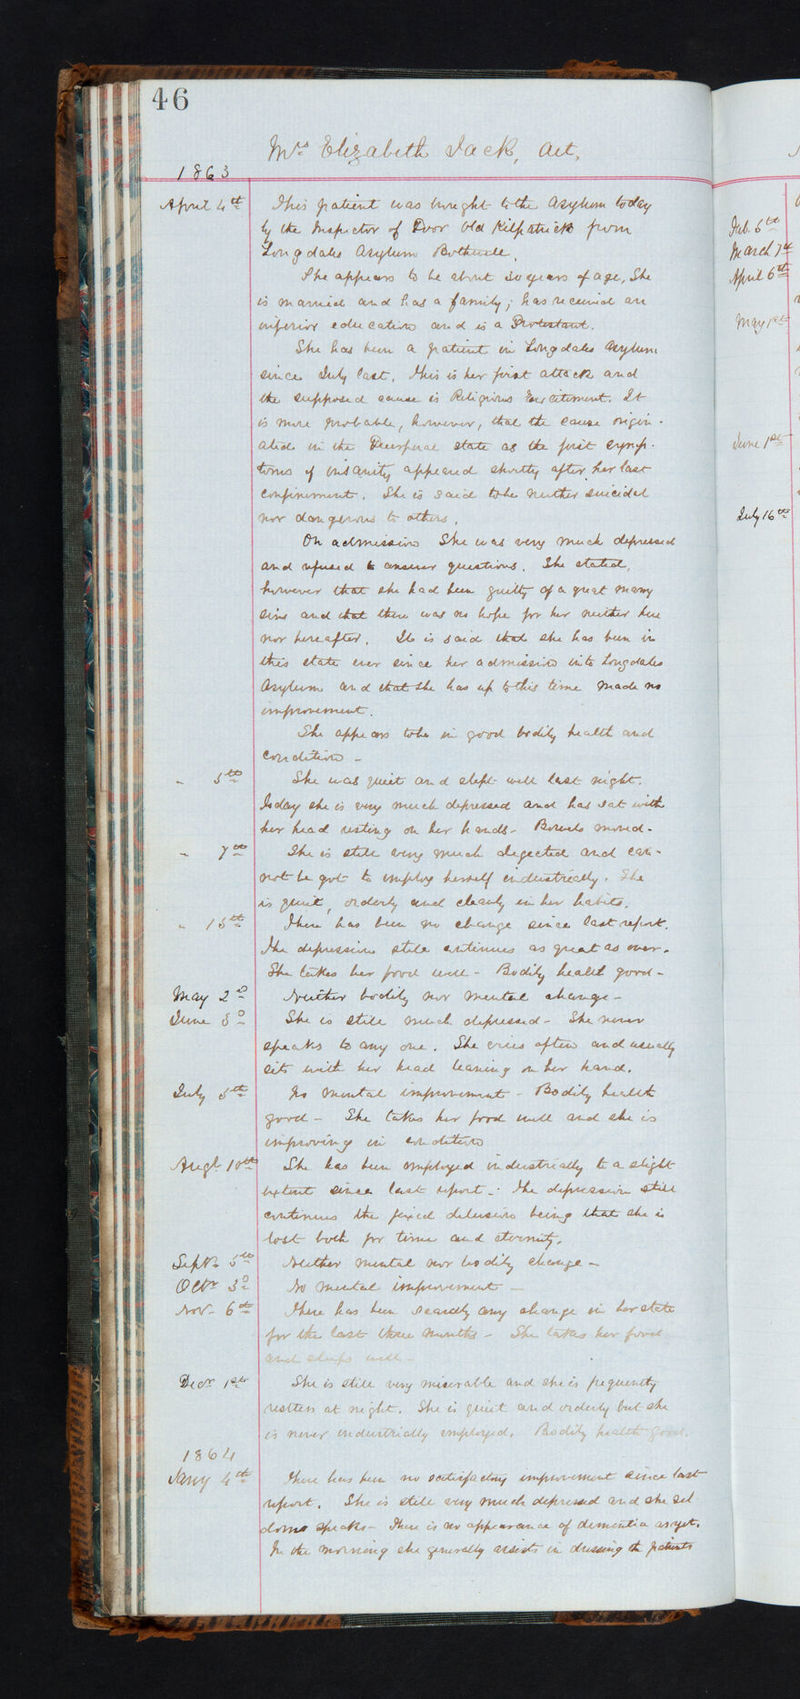 46
Mrs Elizabeth Jack, aet,
1863
April 4th This patient was brought to the Asylum today
by the Inspector of Poor Old Kilpatrick from
Longdales Asylum Bothwell.
She appears to be about 30 years of age, She
is married and has a family; has received an
inferior education and is a Protestant.
She has been a patient in Longdales Asylum
since July last. This is her first attack and
the supposed cause is Religious Excitement. It
is more probable, however, that the cause origin-
ated in the Puerperal state as the first symp-
toms of insanity appeared shortly after her last
confinement. She is said to be neither suicidal
nor dangerous to others.
On admission She was very much depressed
and refused to answer questions. She stated,
however that she had been guilty of a great many
sins and that there was no hope for her neither here
nor hereafter. It is said that she has been in
this state ever since her admission into Longdales
Asylum and that she has up to this time made no
improvement.
She appears to be in good bodily health and
condition -
" 5th She was quiet and slept well last night.
Today she is very much depressed and has sat with
her head resting on her hands - Bowels moved -
" 7th She is still very much dejected and can-
not be got to employ herself industrially. She
is quiet, orderly and cleanly in her habits.
" 15th There has been no change since last report.
The depression still continues as great as ever.
She takes her food well - Bodily health good -
May 2d Neither bodily nor mental change -
June 3d She is still much depressed - She never
speaks to any one. She cries often and usually
sits with her head leaning on her hand.
July 5th No mental improvement - Bodily health
good - She takes her food well and she is
improving in condition
Augt 10th She has been employed industrially to a slight
extent since last report - The depression still
continues the fixed delusion being that she is
lost both for time and eternity.
Septr 5th Neither mental nor bodily change -
Octr 3d No mental improvement -
Nov - 6th There has been scarcely any change in her state
for the last three months - She takes her food
and sleeps well -
Decr 1st She is still very miserable and she is frequently
restless at night. She is quiet and orderly but she
is never industrially employed. Bodily health good.
1864
Jany 4th There has been no satisfactory improvement since last
report. She is still very much depressed and she sel
doms speaks - There is no appearance of dementia as yet.
In the morning she generally assists in dressing the patients
Feb. 6th
March 7th
April 6th
May 1st
June 1st
July 16th